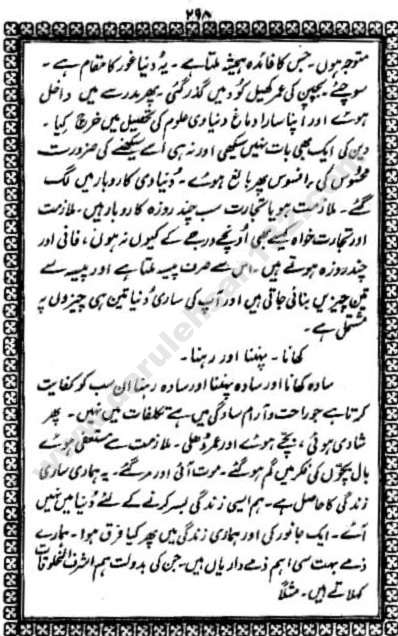 ۲۹۸
متوجہ ہوں۔ جس کا فائدہ ہمیشہ ملتا ہے۔ یہ دُنیا غور کا مقام ہے۔
سوچئے بچپن کی عمر کھیل کُود میں گذر گئی پھر مدرسے میں داخل
ہوئے اور اپنا سارا دماغ دنیاوی علوم کی تحصیل میں خرچ کیا۔
دین کی ایک بھی بات نہیں سیکھی اور نہ ہی اُسے سیکھنے کی ضرورت
محسُوس کی۔ افسوس پھر بالغ ہوئے۔ دُنیاوی کاروبار میں لگ
گئے۔ ملازمت ہو یا تجارت سب چند روزہ کاروبار ہیں۔ ملازمت
اور تجارت خواہ کیسے بھی اُونچے درجے کے کیوں نہ ہوں، فانی اور
چند روزہ ہوتے ہیں۔ اس سے صرف پیسہ ملتا ہے اور پیسہ سے
تین چیزیں بنائی جاتی ہیں اور آپ کی ساری دُنیا تین ہی چیزوں پر
مشتمل ہے۔
کھانا۔ پہننا اور رہنا۔
سادہ کھانا اور سادہ پہننا اور سادہ رہنا ان سب کو کفایت
کرتا ہے جو راحت و آرام سادگی میں ہے تکلفات میں نہیں۔ پھر
شادی ہوئی، بچّے ہوئے اور عمر ڈھلی۔ ملازمت سے مستعفی ہوئے
بال بچّوں کی فکر میں گم ہو گئے۔ موت آئی اور مر گئے۔ یہ ہماری ساری
زندگی کا حاصل ہے۔ ہم ایسی زندگی بسر کرنے کے لئے دُنیا میں نہیں
آئے۔ ایک جانور کی اور ہماری زندگی میں پھر کیا فرق ہوا۔ ہمارے
ذمے بہت سی اہم ذمے داریاں ہیں۔ جن کی بدولت ہم اشرف المخلوقات
کہلاتے ہیں۔ مثلاً